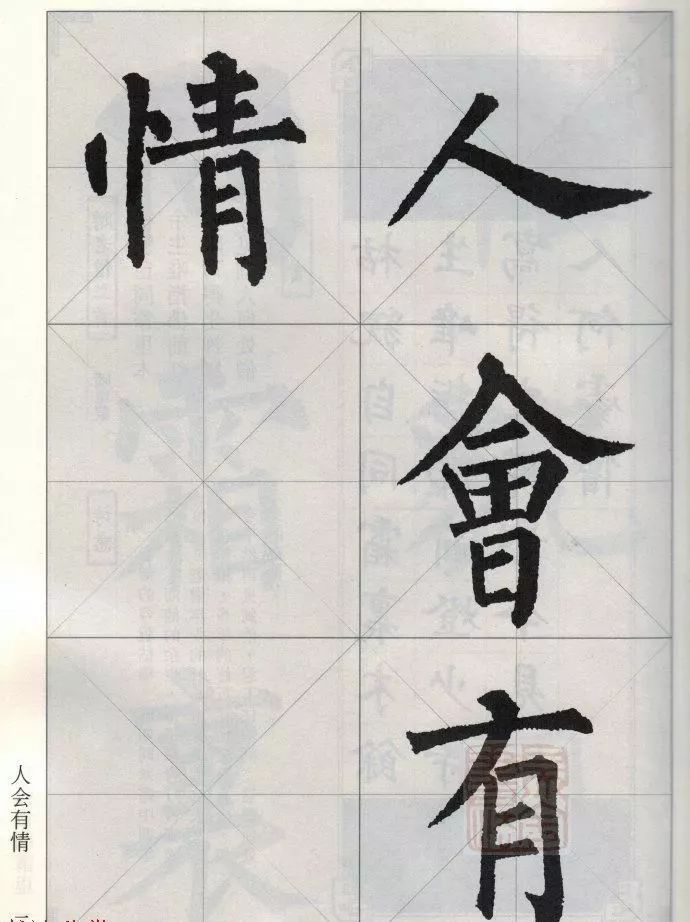 人會有
情
人会有情